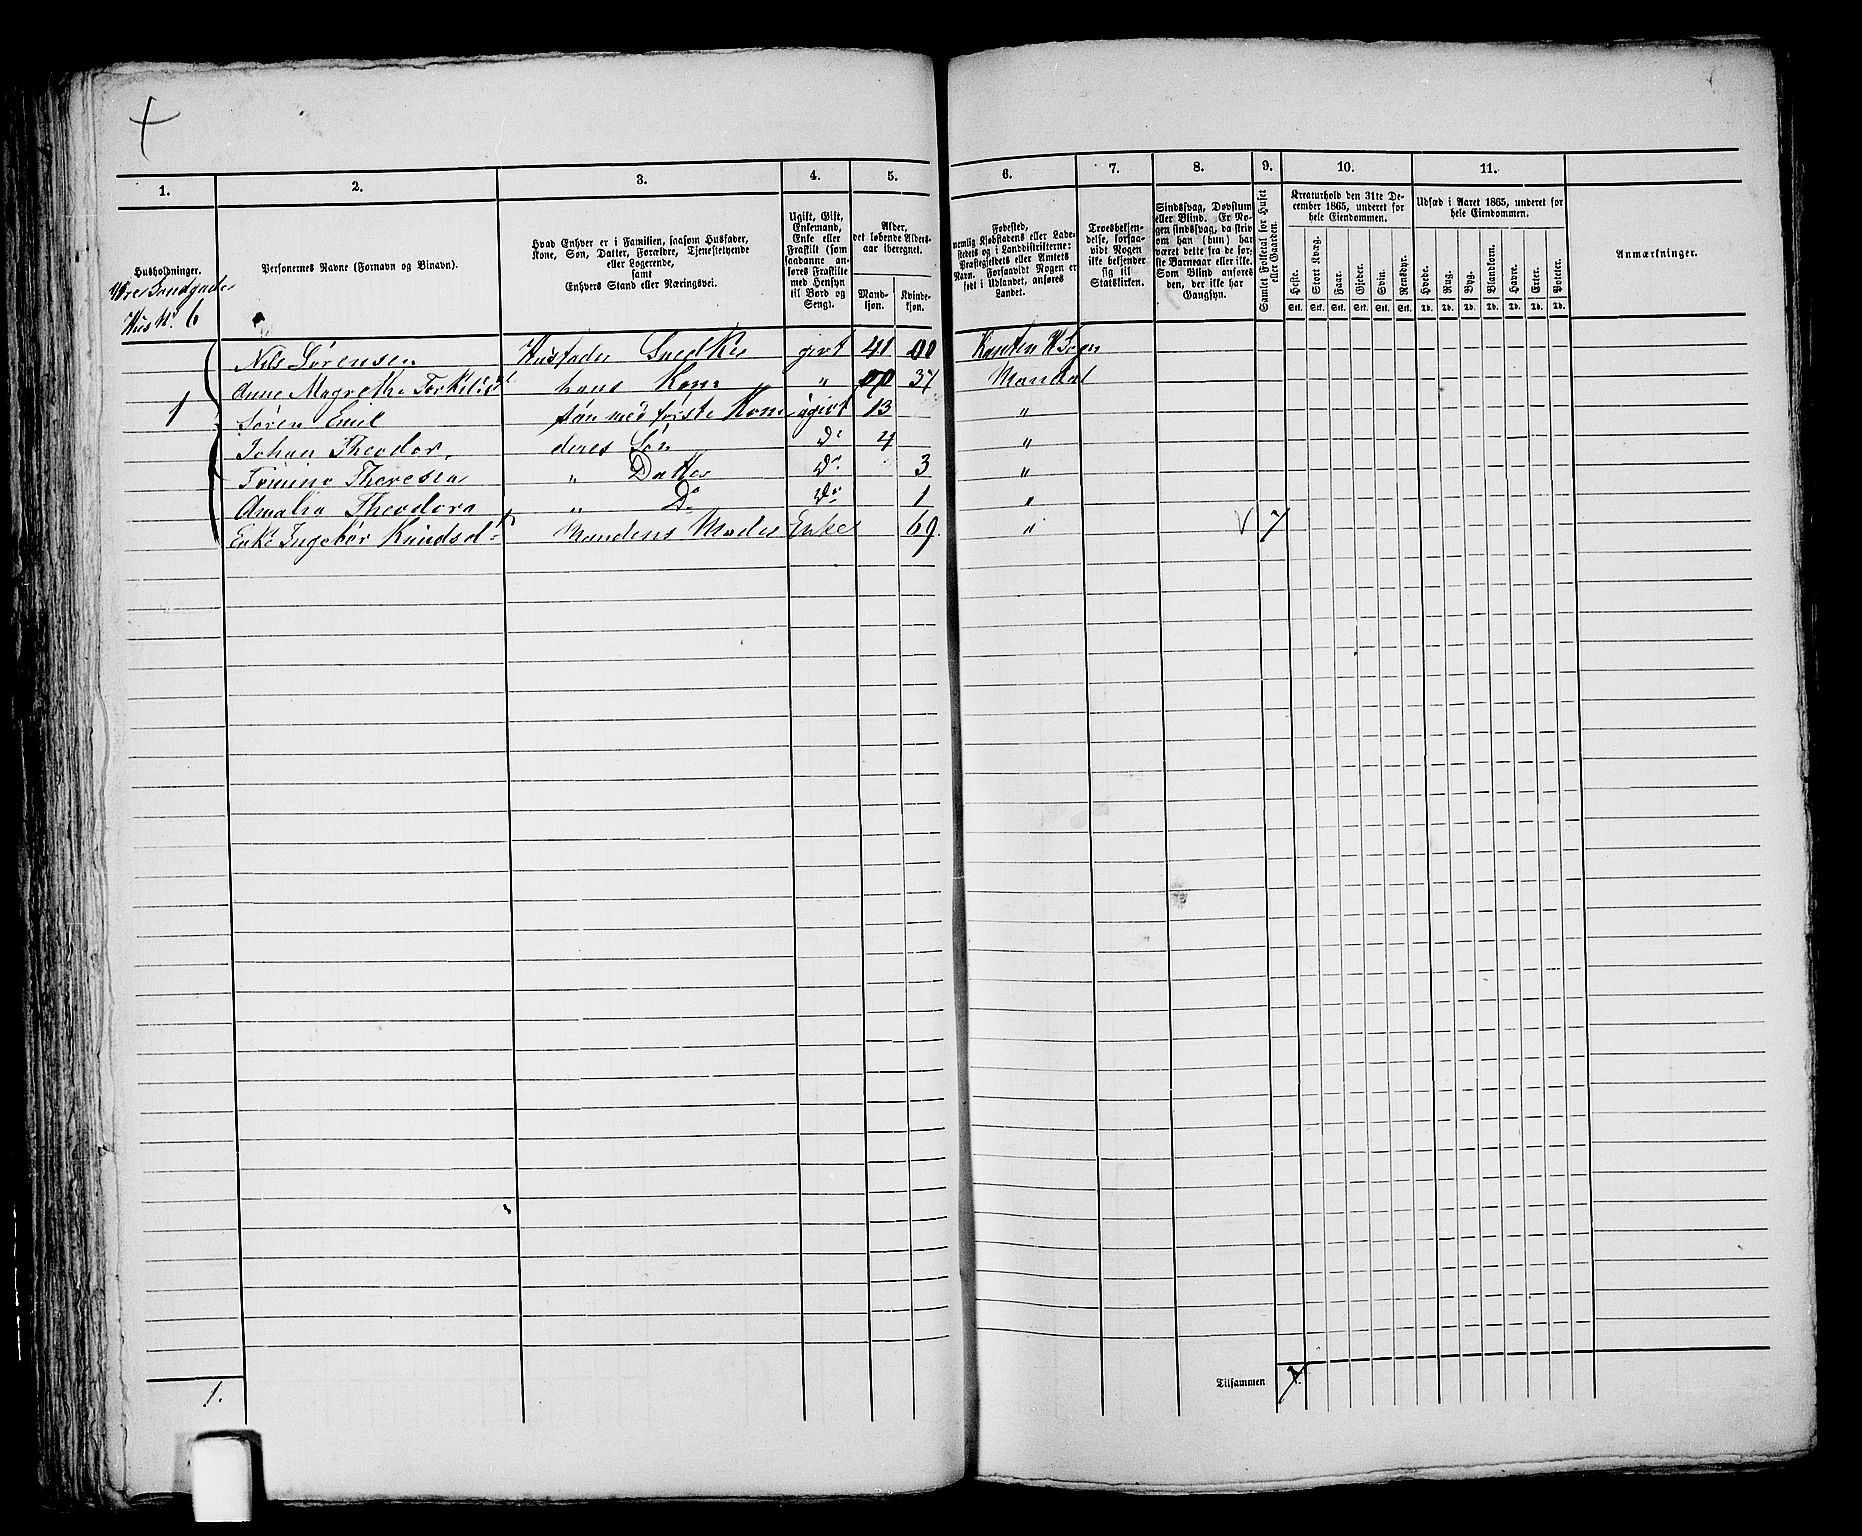 1.
2.
3.
4.
5.
6.
7.
8.
9.
10.
11.
Husholdninger.
Personernes Navne (Fornavn og Binavn).
Hvad Enhver er i Familien, saasom Husfader,
Kone, Søn, Datter, Forældre, Tjenestetyende
eller Logerende,
samt
Enhvers Stand eller Næringsvei.
Ugift, Gift,
Enkemand,
Enke eller
Fraskilt (som
saadanne an-
føres Fraskilte
med Hensyn
til Bord og
Seng).
Alder,
det løbende Alders-
aar iberegnet.
Mand-
kjøn.
Kvinde-
kjøn.
Fødested,
nemlig Kjøbstadens eller Lade-
stedets og i Landdistrikterne:
Præstegjeldets eller Amtets
Navn. Forsaavidt Nogen er
født i Udlandet, anføres
Landet.
Troesbekjen-
delse, forsaa-
vidt Nogen
ikke bekjender
sig til
Statskirken.
Sindssvag, Døvstum
eller Blind. Er No-
gen sindssvag, da skriv
om han (hun) har
været dette fra de før-
ste Barneaar eller ikke.
Som Blind anføres
den, der ikke har
Gangsyn.
Samlet Folketal for Huset
eller Gaarden.
Kreaturhold den 31te De-
cember 1865, underet for
hele Eiendommen.
Heste.
Stort Kvæg.
Faar.
Gjeder.
Svin.
Rensdyr.
Stk. Stk. Stk. Stk. Stk. Stk.
Udsæd i Aaret 1865, underet for
hele Eiendommen.
Hvede.
Rug.
Byg.
Blandkorn.
Havre.
Erter.
Poteter.
Td. Td. Td. Td. Td. Td. Td.
Anmærkninger.
Hus N. 6
1
Nils Sørensen Husfader Snedker givt 41 00
Anne Magrethe hans Kone " 00 37 Mandal
Søren Emil Søn med første Kone ugivt 13 "
Johan Theodor deres Søn Do 4 "
Theresen " Datter Do 3 "
Amalia Theodora " Do Do 1 "
Enke Ingebor Mandens Moder Enke 69. " V 7
1.
Tilsammen 7